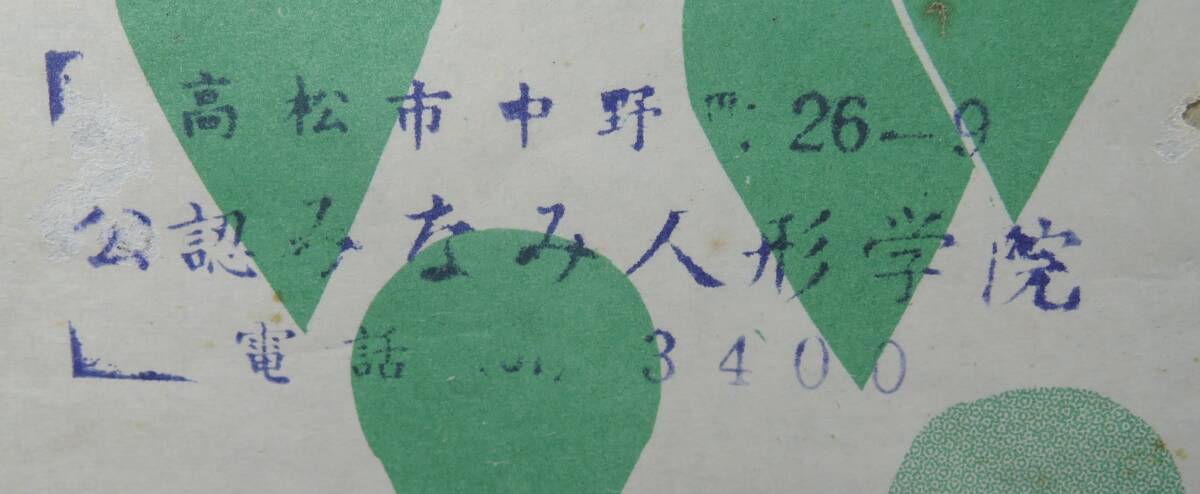 高松市中野町 26-9
公認みなみ人形学院
電話 3400